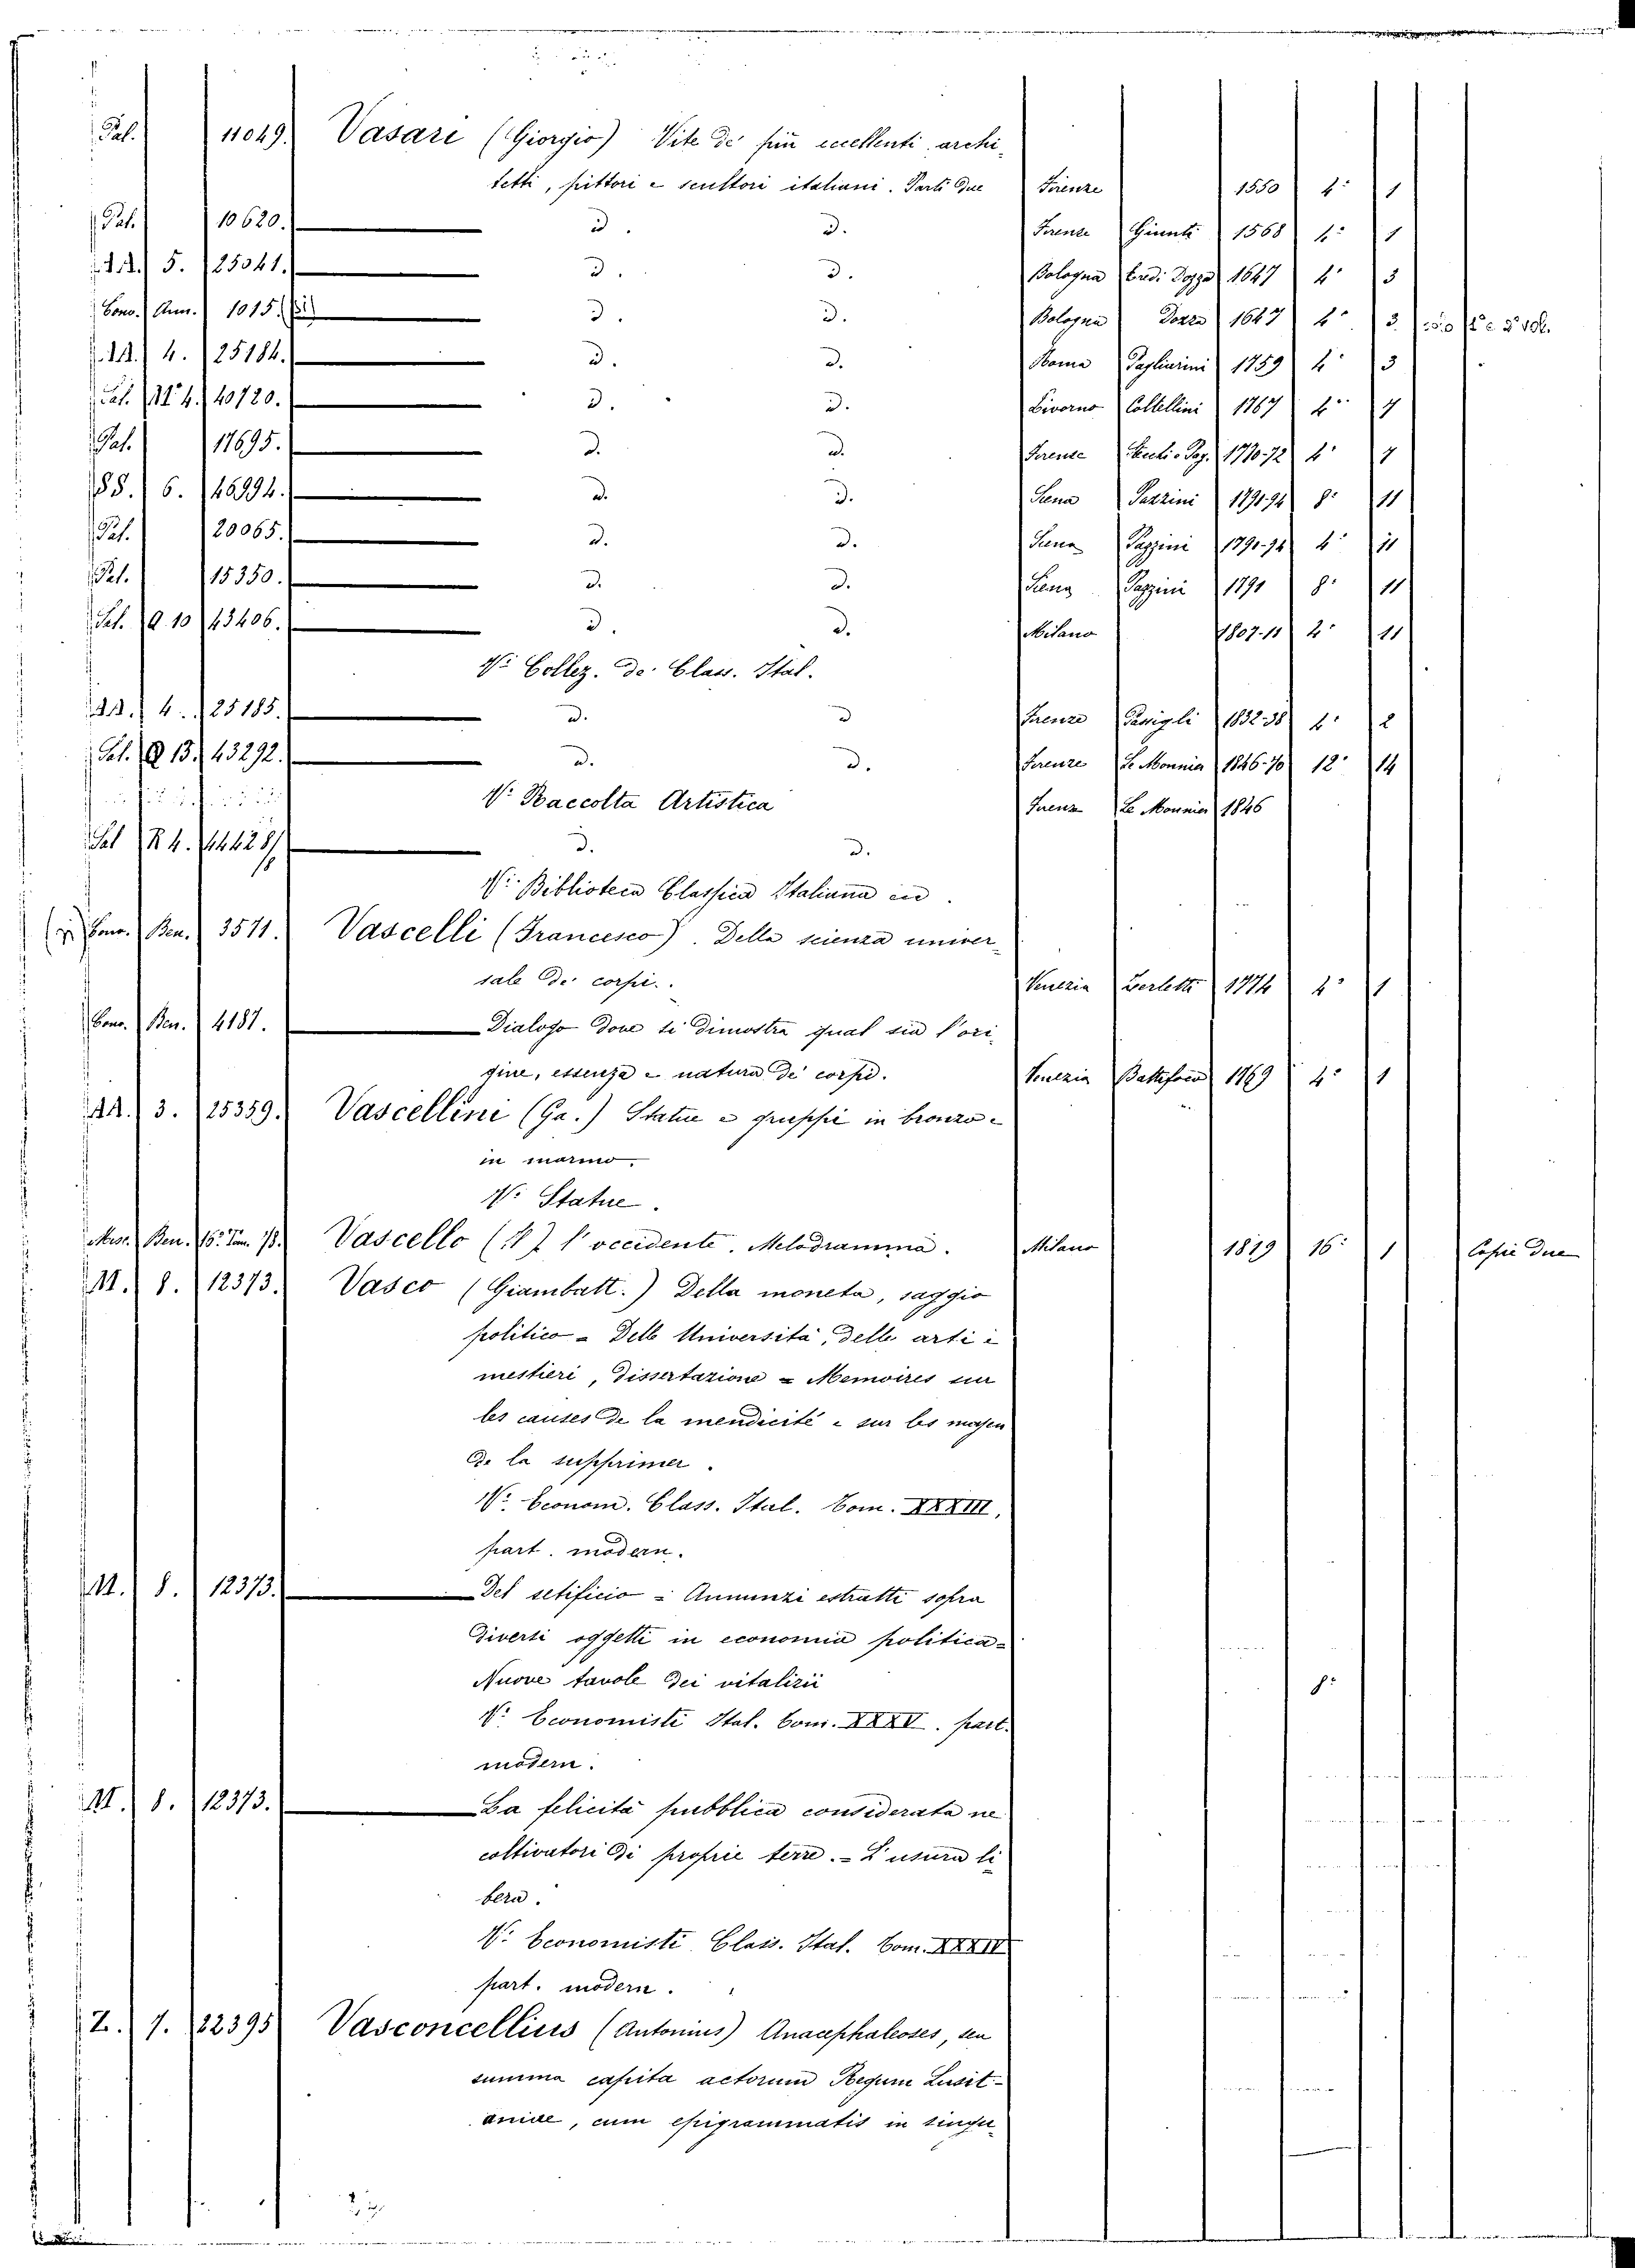 Pal. 11049. Vasari (Giorgio) Vite de' più eccellenti archi-
tetti, pittori e scultori italiani. Parti due Firenze 1550 4° 1
Pal. 10620. d. d. Firenze Giunti 1568 4° 1
AA. 5. 25041. d. d. Bologna Eredi Dozza 1647 4° 3
Cons. Ann. 1015. d. d. Bologna Dozza 1647 4° 3
AA. 4. 25184. d. d. Roma Pagliarini 1759 4° 3
Pal. 4. 40720. d. d. Livorno Coltellini 1767 4° 7
Pal. 17695. d. d. Firenze Stecchi e Pag. 1770-72 4° 7
6. d. d. Siena Pazzini 1791-94 8° 11
Pal. 20065. d. d. Siena Pazzini 1791-94 4° 11
Pal. 15350. d. d. Siena Pazzini 1791 8° 11
Pal. Q. 10 43406. d. d. Milano 1807-11 2° 11
V. Collez. de' Class. Ital.
AA. 4. 25185. d. d. Firenze Passigli 1832-38 4° 2
Pal. Q 13. 43292. d. d. Firenze Le Monnier 1846-70 12° 14
V. Raccolta Artistica Firenze Le Monnier 1846
Pal R 4. d. d.
V. Biblioteca Classica Italiana
Cons. Ben. 3511. Vascelli (Francesco). Della scienza univer-
sale de' corpi. Venezia Berletti 1774 4° 1
Cons. Ben. 4187. Dialogo dove si dimostra qual sia l'ori-
gine, essenza e natura de' corpi. Venezia 1769 4° 1
AA. 3. 25359. Vascellini (Ga.) Statue e gruppi in bronzo e
in marmo.
V. Statue.
Misc. Ben. 16° Tom. 78. Vascello (Il) l'occidente. Melodramma. Milano 1829 16° 1 Copie due
M. 8. 12373. Vasco (Giambatt.) Della moneta, saggio
politico = Delle Università, delle arti e
mestieri, dissertazione = Memoires sur
les causes de la mendicité e sur les moyen
de la supprimer.
V. Econom. Class. Ital. Tom. XXXIII,
part. modern.
M. 8. 12373. Del setificio = Annunzi estratti sopra
diversi oggetti in economia politica =
Nuove tavole dei vitalizii 8°
V. Economisti Ital. Tom. XXXV. part.
modern.
M. 8. 12373. La felicità pubblica considerata ne'
coltivatori di proprie terre. = L'usura li
bera.
V. Economisti Class. Ital. Tom. XXXIV
part. modern.
Z. 7. 22395 Vasconcellius (Antonius) Anacephaleoses, seu
summa capita actorum Regum Lusit-
aniae, cum epigrammatis in singu-